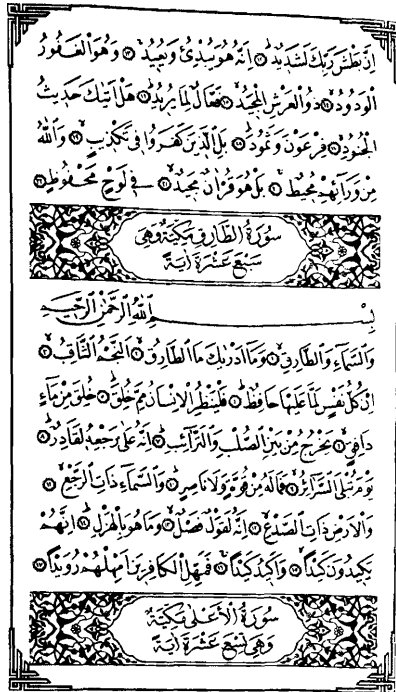 اِنَّ بَطْشَ رَبِّكَ لَشَدِيدٌ ﴿١٢﴾ اِنَّهُ هُوَ يُبْدِئُ وَيُعِيدُ ﴿١٣﴾ وَهُوَ الْغَفُورُ
الْوَدُودُ ﴿١٤﴾ ذُو الْعَرْشِ الْمَجِيدُ ﴿١٥﴾ فَعَّالٌ لِمَا يُرِيدُ ﴿١٦﴾ هَلْ اَتٰيكَ حَدِيثُ
الْجُنُودِ ﴿١٧﴾ فِرْعَوْنَ وَثَمُودَ ﴿١٨﴾ بَلِ الَّذِينَ كَفَرُوا فِى تَكْذِيبٍ ﴿١٩﴾ وَاللّٰهُ
مِنْ وَرَآئِهِمْ مُحِيطٌ ﴿٢٠﴾ بَلْ هُوَ قُرْاٰنٌ مَجِيدٌ ﴿٢١﴾ فِى لَوْحٍ مَحْفُوظٍ ﴿٢٢﴾
سُورَةُ الطَّارِقِ مَكِّيَّةٌ وَهِىَ
سَبْعَ عَشْرَةَ اٰيَةً
بِسْمِ اللّٰهِ الرَّحْمٰنِ الرَّحِيمِ
وَالسَّمَآءِ وَالطَّارِقِ ﴿١﴾ وَمَآ اَدْرٰيكَ مَا الطَّارِقُ ﴿٢﴾ اَلنَّجْمُ الثَّاقِبُ ﴿٣﴾
اِنْ كُلُّ نَفْسٍ لَمَّا عَلَيْهَا حَافِظٌ ﴿٤﴾ فَلْيَنْظُرِ الْاِنْسَانُ مِمَّ خُلِقَ ﴿٥﴾ خُلِقَ مِنْ مَآءٍ
دَافِقٍ ﴿٦﴾ يَخْرُجُ مِنْ بَيْنِ الصُّلْبِ وَالتَّرَآئِبِ ﴿٧﴾ اِنَّهُ عَلٰى رَجْعِهِ لَقَادِرٌ ﴿٨﴾
يَوْمَ تُبْلَى السَّرَآئِرُ ﴿٩﴾ فَمَالَهُ مِنْ قُوَّةٍ وَلَا نَاصِرٍ ﴿١٠﴾ وَالسَّمَآءِ ذَاتِ الرَّجْعِ ﴿١١﴾
وَالْاَرْضِ ذَاتِ الصَّدْعِ ﴿١٢﴾ اِنَّهُ لَقَوْلٌ فَصْلٌ ﴿١٣﴾ وَمَا هُوَ بِالْهَزْلِ ﴿١٤﴾ اِنَّهُمْ
يَكِيدُونَ كَيْدًا ﴿١٥﴾ وَاَكِيدُ كَيْدًا ﴿١٦﴾ فَمَهِّلِ الْكَافِرِينَ اَمْهِلْهُمْ رُوَيْدًا ﴿١٧﴾
سُورَةُ الْاَعْلٰى مَكِّيَّةٌ
وَهِىَ تِسْعَ عَشْرَةَ اٰيَةً